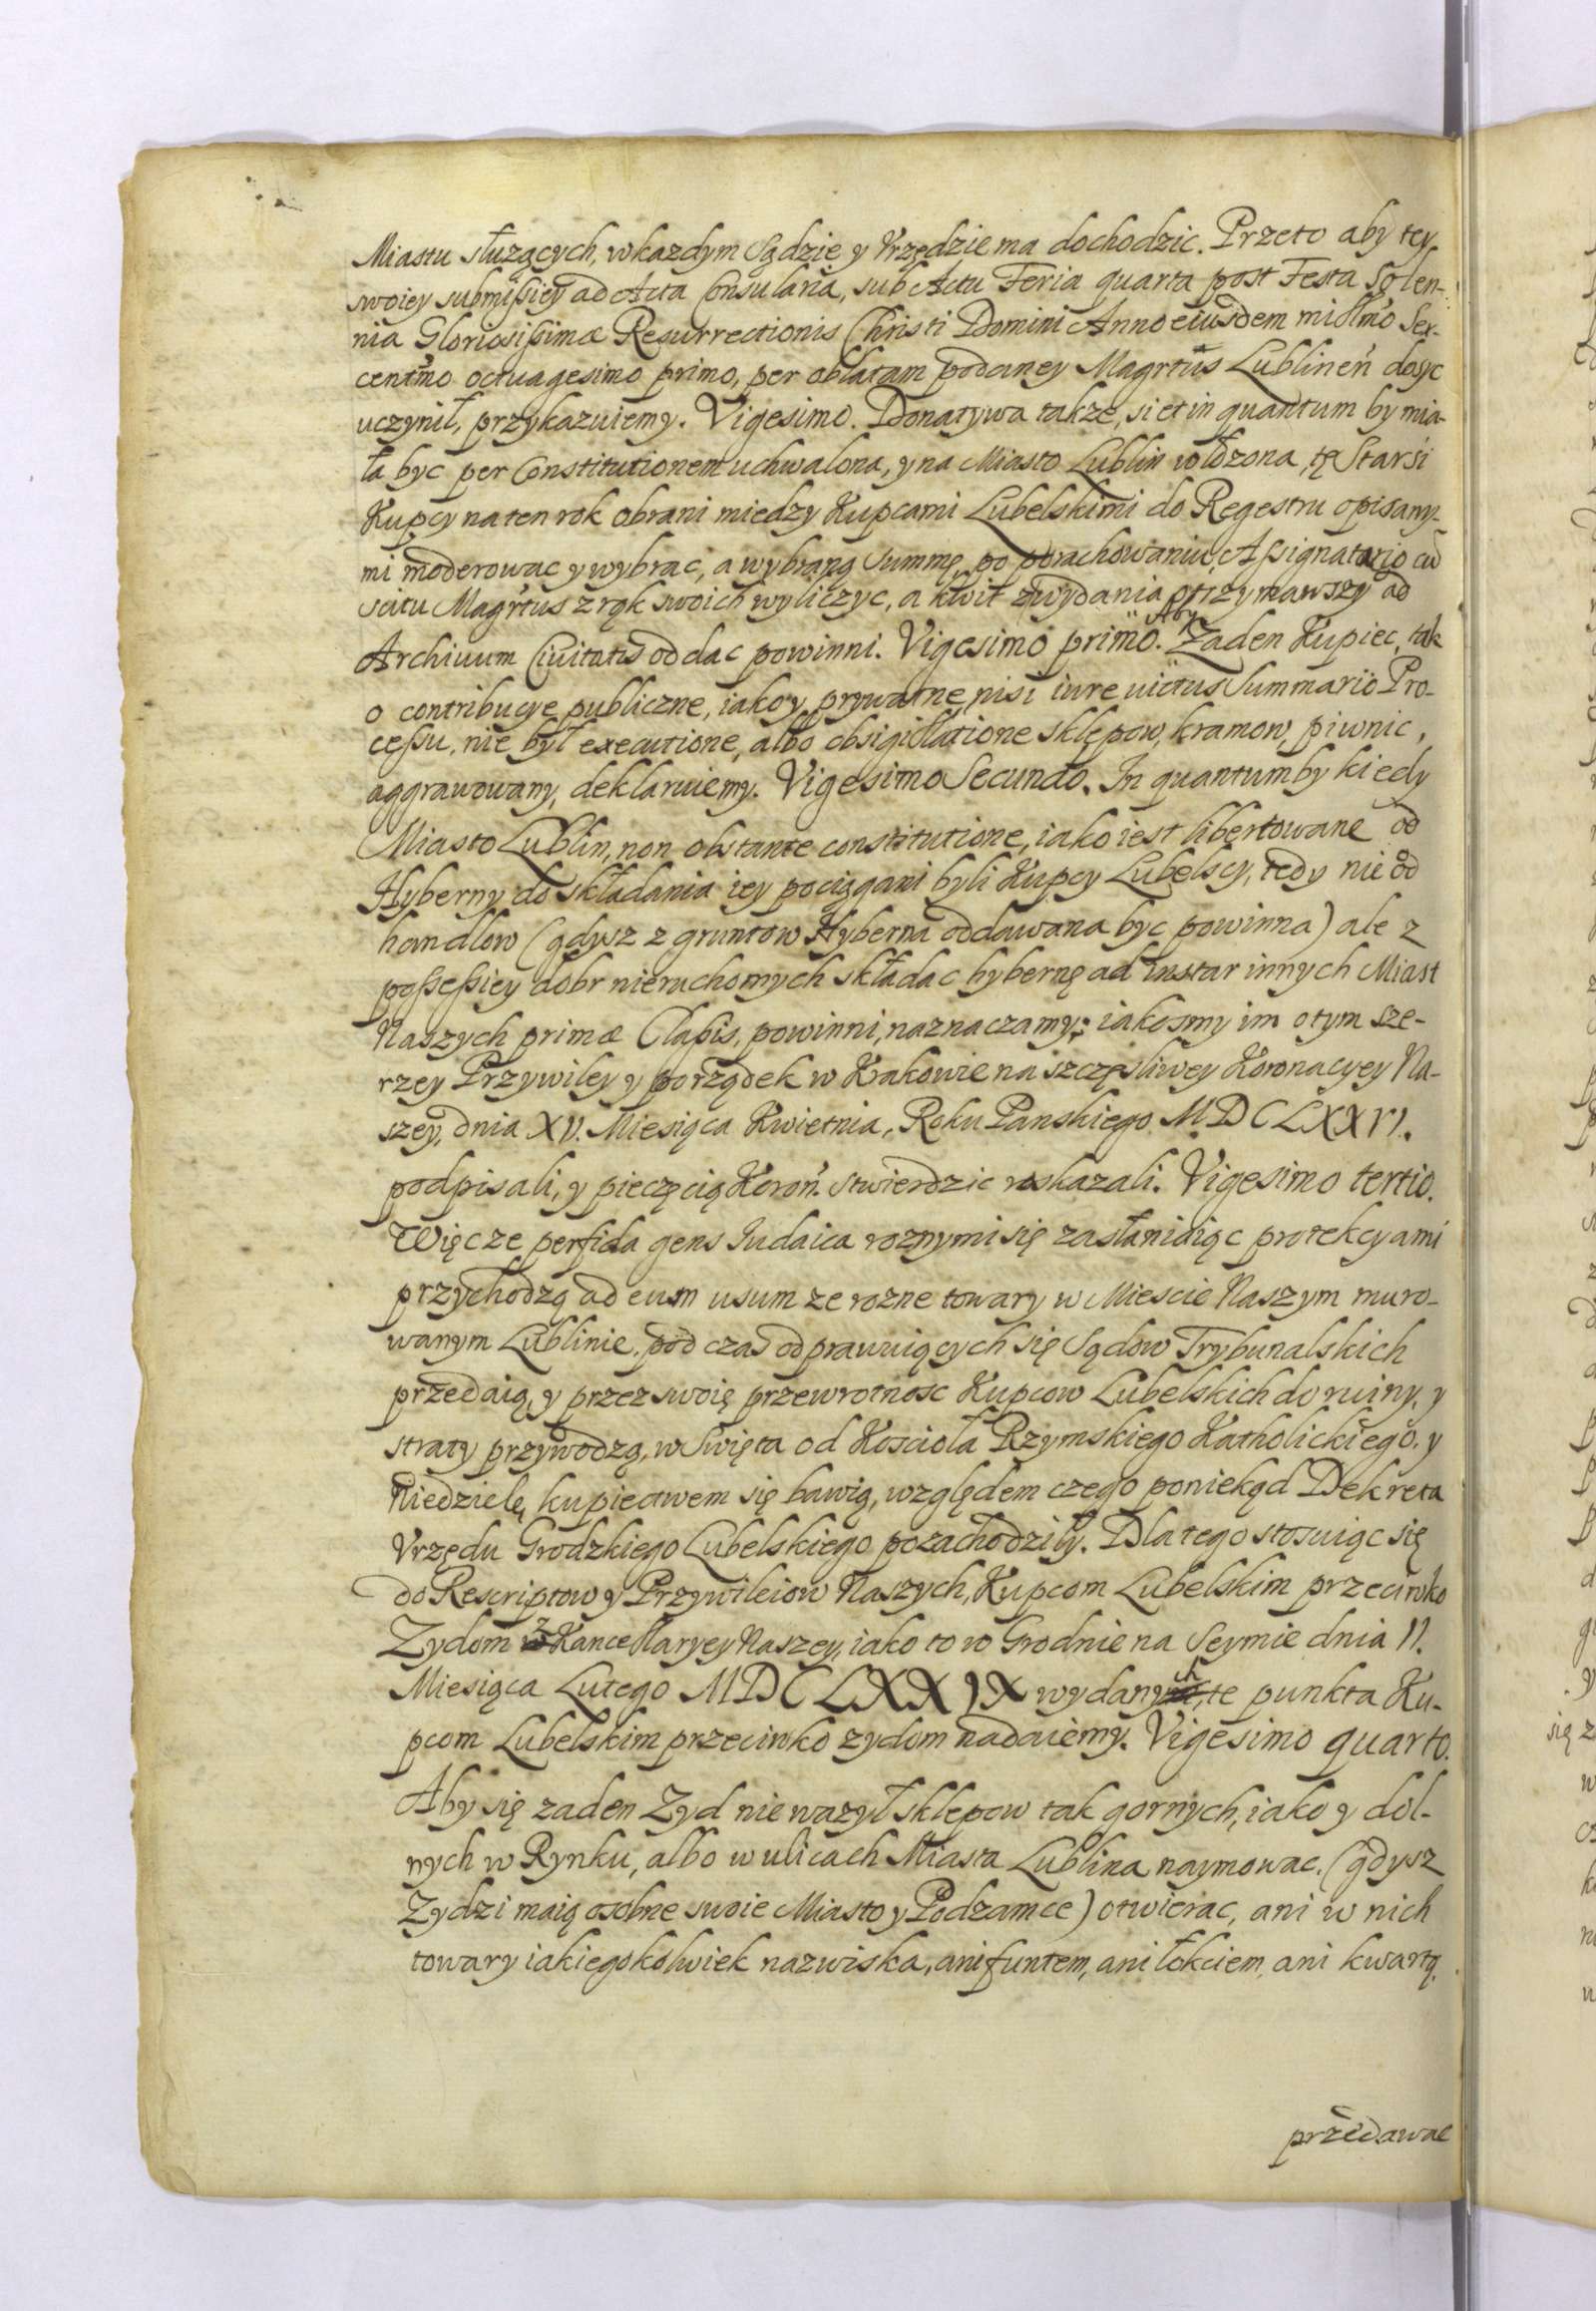 Miastu słuzących, w kazdym Sądzie y Vrzędzie ma dochodzic. Przeto aby tey
swoiey submissiey ad Acta Consularia, sub Actu Feria quarta post Festa Solen-
nia Gloriosissimæ Resurrectionis Christi Domini Anno eiusdem millmo Sex-
centmo octuagesimo primo, per oblatam podaney Magrtus Lublineń dosyc
uczynił, przykazuiemy. Vigesimo. Donatywa takze, si et in quantum by mia-
ła byc per Constitutionem uchwalona, y na Miasto Lublin włozona, tę Starsi
Kupcy na ten rok obrani miedzy Kupcami Lubelskimi do Regestru opisany-
mi moderowac y wybrac, a wybraną Summę, po porachowaniu, Assignatario cū
scitu Magrtus z rąk swoich wyliczyc, a kwit z wydania otrzymawszy ad
Archiuum Ciuitatis oddac powinni. Vigesimo primo. Aby Zaden Kupiec, tak
o contribucye publiczne, iako y prywatne, nisi iure uictus Summario Pro-
cessu, nie był executione, albo obsigillatione sklepow, kramow, piwnic,
aggrauowany, deklaruiemy. Vigesimo Secundo. In quantumby kiedy
Miasto Lublin, non obstante constitutione, iako iest libertowane od
Hyberny do składania iey pociągani byli Kupcy Lubelscy, tedy nie od
handlow (gdysz z gruntow Hyberna oddawana byc powinna) ale z
possessiey dobr nieruchomych składac hybernę ad instar innych Miast
Naszych primæ Classis, powinni, naznaczamy; iakosmy im o tym sze-
rzey Przywiley y porządek w Krakowie na szczęsliwey Koronacyey Na-
szey, dnia XV. Miesiąca Kwietnia, Roku Panskiego MDCLXXVI.
podpisali, y pieczęcią Koroń. stwierdzic roskazali. Vigesimo tertio.
Więc ze perfida gens Iudaica roznymi się zasłaniaiąc protekcyami
przychodzą ad eum usum ze rozne towary w Miescie Naszym muro-
wanym Lublinie, pod czas odprawuiących się Sądow Trybunalskich
przedaią, y przez swoię przewrotnosc Kupcow Lubelskich do ruiny, y
straty przywodzą, w Swięta od Koscioła Rzymskiego Katholickiego, y
Niedzielę, kupiectwem się bawią, względem czego poniekąd Dekreta
Vrzędu Grodzkiego Lubelskiego pozachodziły. Dla tego stosuiąc się
do Rescriptow y Przywileiow Naszych, Kupcom Lubelskim przeciwko
Zydom z Kancellaryey Naszey, iako to w Grodnie na Seymie dnia 11.
Miesiąca Lutego MDCLXXIX wydanych, te punkta Ku-
pcom Lubelskim przeciwko zydom nadaiemy. Vigesimo quarto.
Aby się zaden Zyd nie wazył sklepow tak gornych, iako y dol-
nych w Rynku, albo w ulicach Miasta Lublina naymowac. (gdysz
Zydzi maią osobne swoie Miasto y Podzamce) otwierac, ani w nich
towary iakiegokolwiek nazwiska, ani funtem, ani łokciem, ani kwartą,
przedawac